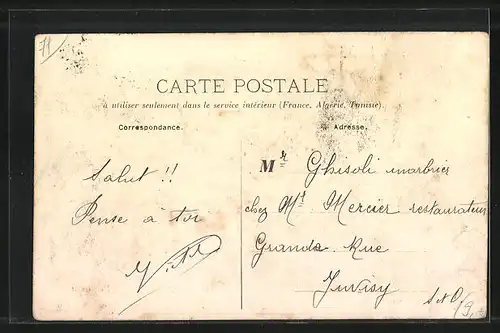 CARTE POSTALE
à utiliser seulement dans le service intérieur (France, Algérie, Tunisie).
Correspondance.
Adresse.
Salut !!
Pense à toi
Mr Ghisoli marbrier
chez Mr Mercier restaurateur
Grande Rue
Juvisy
S et O.